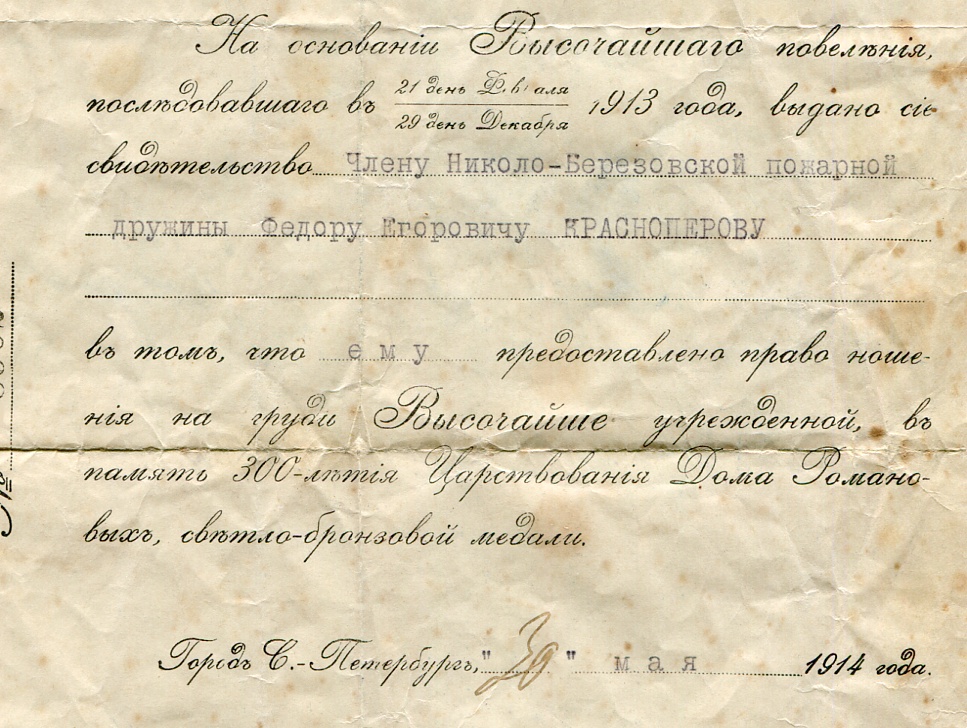 На основаніи Высочайшаго повелѣнія,
послѣдовавшаго въ 21 день Фев аля
29 день Декабря 1913 года, выдано сіе
свидѣтельство Члену Николо-Березовской пожарной
дружины Федору Егоровичу КРАСНОПЕРОВУ
въ томъ, что ему предоставлено право ноше-
нія на груди Высочайше учрежденной, въ
память 300-лѣтія Царствованія Дома Романо-
выхъ, свѣтло-бронзовой медали.
Городъ С.-Петербургъ, "30" мая 1914 года.
№